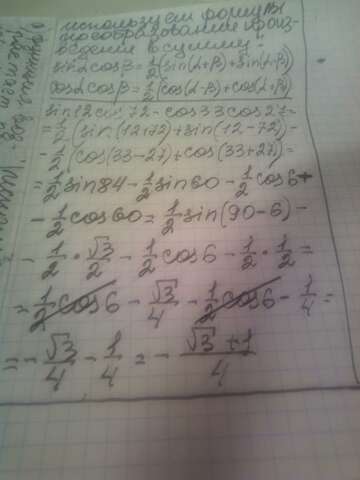 используем формулы
преобразования произ-
ведения в сумму:
sinα cosβ = 1/2 (sin(α+β)+sin(α-β))
cosα cosβ = 1/2 (cos(α-β)+cos(α+β))
sin12cos72 - cos33cos27 =
= 1/2 (sin(12+72)+sin(12-72)) -
- 1/2 (cos(33-27)+cos(33+27)) =
= 1/2 sin84 - 1/2 sin60 - 1/2 cos6 -
- 1/2 cos60 = 1/2 sin(90-6) -
- 1/2 · √3/2 - 1/2 cos6 - 1/2 · 1/2 =
= 1/2 cos6 - √3/4 - 1/2 cos6 - 1/4 =
= - √3/4 - 1/4 = - (√3+1)/4